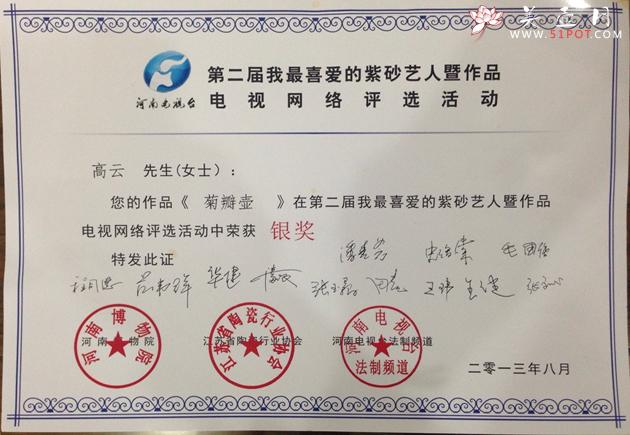 美壶网
WWW.51POT.COM
河南电视台
第二届我最喜爱的紫砂艺人暨作品
电视网络评选活动
高云 先生(女士)：
您的作品《 菊瓣壶 》在第二届我最喜爱的紫砂艺人暨作品
电视网络评选活动中荣获 银奖
特发此证
河南博物院 江苏省陶瓷行业协会 河南电视台法制频道
河南博物院
江苏省陶瓷行业协会
河南电视台
法制频道
二零一三年八月